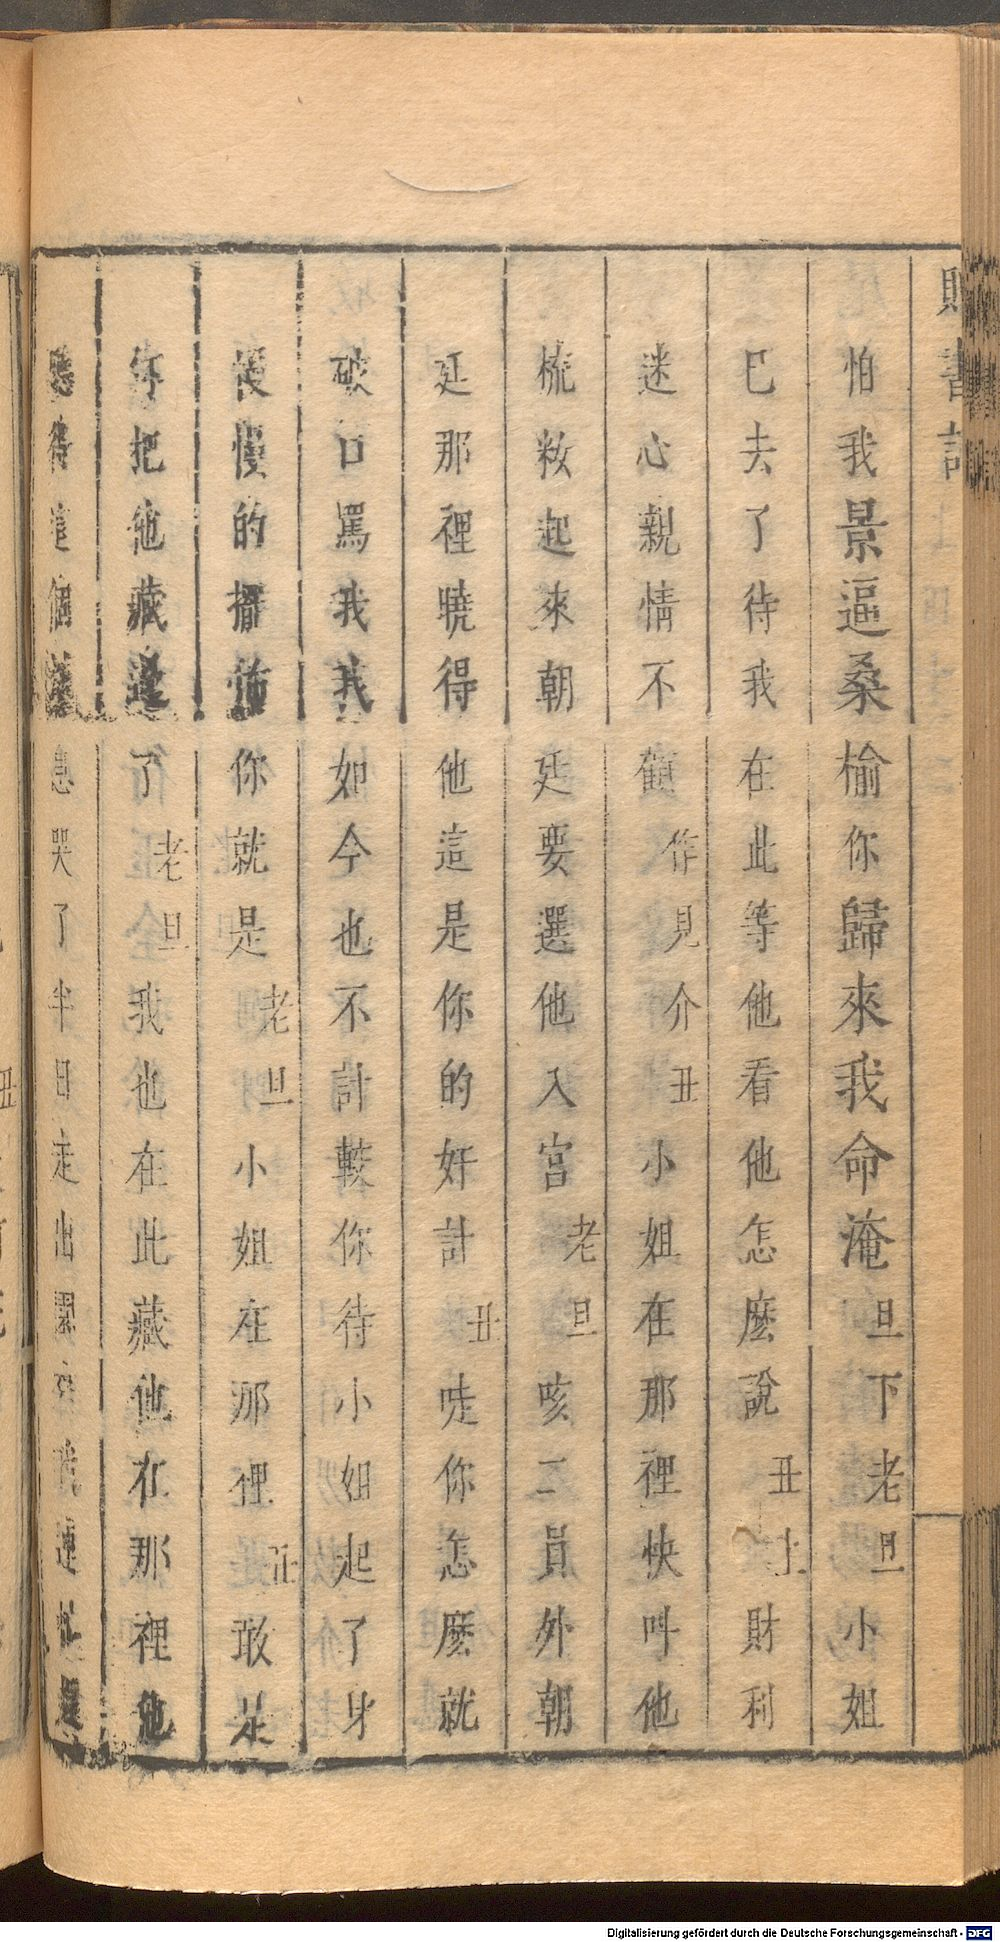 怕我景逼桑榆你歸來我命淹旦下老旦小姐
已去了待我在此等他看他怎麽說丑上財利
迷心親情不顧作見介丑小姐在那裡快呌他
梳粧起來朝廷要選他入宮老旦咳二員外朝
廷那裡曉得他這是你的奸計丑唗你怎麽就
破口罵我我如今也不計較你待小姐起了身
慢慢的擺佈你就是老旦小姐在那裡丑敢是
你把他藏過了老旦我也在此藏他在那裡他
得這個急哭了半日走出
Digitalisierung gefördert durch die Deutsche Forschungsgemeinschaft - DFG